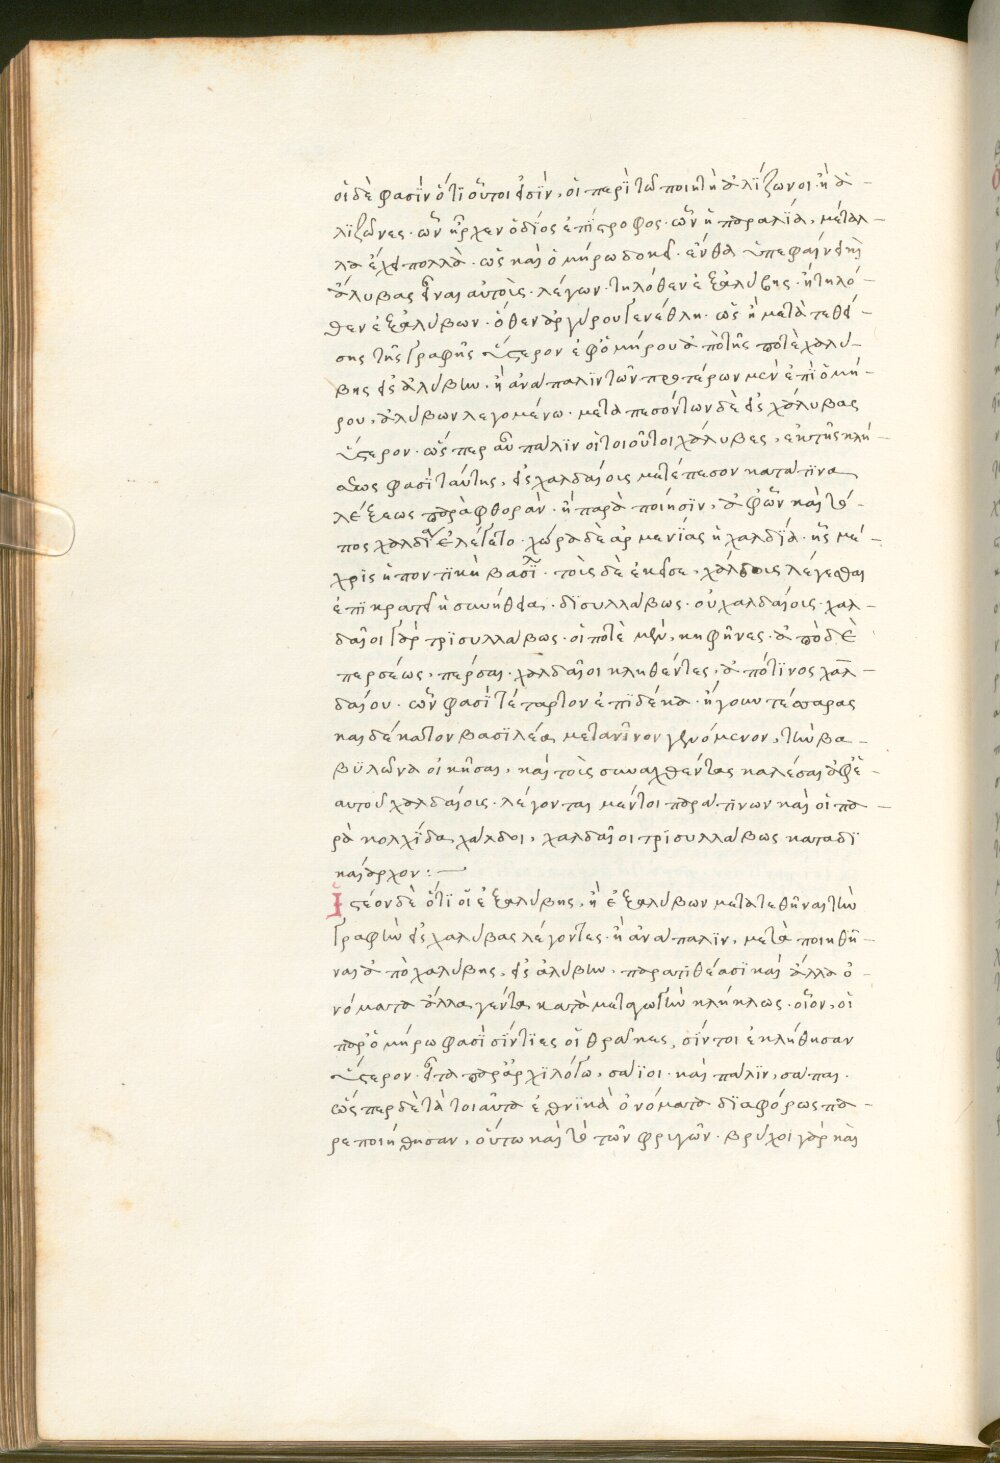 οἱ δὲ φασὶν ὅτι οὗτοι εἰσὶν, οἱ περὶ τῶ ποιητῆ ἀλίζωνοι ἢ ἀ-
λιζῶνες· ὧν ἦρχεν ὁδίος ἐπίστροφος· ὧν ἡ παραλία, μέταλ-
λα ἔχει πολλὰ· ὡς καὶ ὁμήρω δοκεῖ· ἔνθα ὑπεφαίνετο
ἀλύβας εἶναι αὐτοῖς· λέγων· τηλόθεν ἐξ ἀλύβης· ἢ τηλό-
θεν ἐξ ἀλύβων· ὅθεν ἀργύρου γενέθλη· ὡς ἢ μετατεθεί-
σης τῆς γραφῆς ὕστερον ἐφ ὁμήρου ἀπὸ τῆς ποτὲ χαλύ-
βης εἰς ἀλύβην· ἢ ἀνάπαλιν τῶν προτέρων μὲν ἐπὶ ὁμή-
ρου, ἀλύβων λεγομένων· μεταπεσόντων δὲ εἰς χάλυβας
ὕστερον· ὥσπερ αὖ πάλιν οἱ τοιοῦτοι χάλυβες, ἐκ τῆς κλή-
σεως φασὶ ταύτης, εἰς χαλδαίοις μετέπεσον κατά τινα
λέξεως παραφθοράν· ἢ παρὰ ποίησιν, ἀφ ὧν καὶ τό-
πος χαλδία ἐλέγετο· χώρα δὲ ἀρμενίας ἡ χαλδία· ἧς μέ-
χρις ἡ ποντικὴ βασιλ· τοὺς δὲ ἐκεῖσε, χάλδοις λέγεσθαι
ἐπικρατεῖ ἡ συνήθεια· δισυλλάβως· οὐ χαλδαίοις· χαλ-
δαῖοι γὰρ τρισυλλάβως· οἱ ποτὲ μὲν, κηφῆνες· ἀπὸ δὲ
περσέως, πέρσαι· χαλδαῖοι κληθέντες, ἀπό τινος χαλ-
δαίου· ὧν φασὶ τέταρτον ἐπὶ δέκα· ἤγουν τέσσαρας
και δέκατον βασιλέα, μετὰ νῖνον γενόμενον, τὴν βα-
βυλῶνα οἰκῆσαι, καὶ τοὺς συναχθέντας καλέσαι ἀφ ἑ-
αυτοῦ χαλδαίοις· λέγονται μέντοι παρά τινων καὶ οἱ πα-
ρὰ κολχίδα χάλδοι, χαλδαῖοι τρισυλλάβως κατὰ δι
καίαρχον:—
Ἰστέον δὲ ὅτι οἱ ἐξ ἀλύβης, ἢ ἐξ ἀλύβων μετατεθῆναι τὴν
γραφὴν εἰς χάλυβας λέγοντες· ἢ ἀνάπαλιν, μεταποιηθῆ-
ναι ἀπὸ χαλύβης, εἰς ἀλύβην, παρατιθέασι καὶ ἄλλα ὀ-
νόματα ἀλλαγέντα κατὰ μεταγωγὴν κλήσεως· οἷον, οἱ
παρ ὁμήρω φασὶ σίντιες οἱ θρᾶκες, σίντοι ἐκλήθησαν
ὕστερον· εἶτα παρ ἀρχιλόχω, σάϊοι· καὶ πάλιν, σάπαι·
ὥσπερ δὲ τὰ τοιαῦτα ἐθνικὰ ὀνόματα διαφόρως πα-
ρεποιήθησαν, οὕτω καὶ τὸ τῶν φρυγῶν· βρύχοι γὰρ καὶ